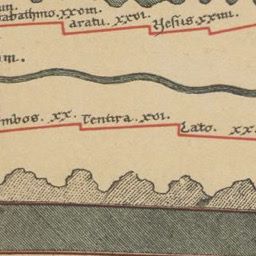 abathmo. xxviii.
aratu. xxvi. Nesus. xxiiii.
om.
mbos. xx. Tentira. xvi.
Lato. xx